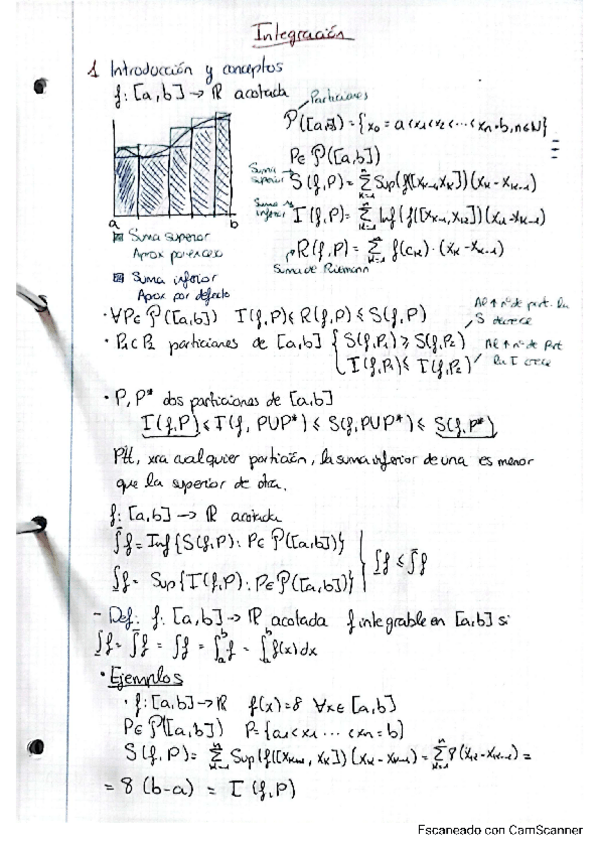 Integración
1 Introducción y conceptos
f: [a,b] → ℝ acotada
Particiones
P([a,b]) = {x₀ = a < x₁ < x₂ < ... < xₙ = b, n∈ℕ}
P∈ P([a,b])
Suma superior
S(f,P) = Σₖ₌₁ⁿ Sup(f([xₖ₋₁,xₖ]))(xₖ - xₖ₋₁)
Suma inferior
I(f,P) = Σₖ₌₁ⁿ Inf(f([xₖ₋₁,xₖ]))(xₖ - xₖ₋₁)
R(f,P) = Σₖ₌₁ⁿ f(cₖ)·(xₖ - xₖ₋₁)
Suma de Riemann
a b
Suma superior
Aprox por exceso
Suma inferior
Aprox por defecto
· ∀P∈ P([a,b]) I(f,P) ≤ R(f,P) ≤ S(f,P)
Al ↑ nº de part. la S decrece
· P₁⊂P₂ particiones de [a,b] { S(f,P₁) ≥ S(f,P₂)
I(f,P₁) ≤ I(f,P₂)
Al ↑ nº de part la I crece
· P, P* dos particiones de [a,b]
I(f,P) ≤ I(f, P∪P*) ≤ S(f, P∪P*) ≤ S(f,P*)
xra cualquier partición, la suma inferior de una es menor
que la superior de otra.
f: [a,b] → ℝ acotada
∫̄f = Inf{S(f,P): P∈ P([a,b])}
∫̲f = Sup{I(f,P): P∈ P([a,b])}
∫̲f ≤ ∫̄f
- Def: f: [a,b] → ℝ acotada f integrable en [a,b] si
∫̲f = ∫̄f = ∫f = ∫ₐᵇ f = ∫ₐᵇ f(x)dx
· Ejemplos
· f: [a,b] → ℝ f(x)=8 ∀x∈ [a,b]
P∈ P([a,b]) P={a < x₁ ... < xₙ = b}
S(f,P) = Σₖ₌₁ⁿ Sup(f([xₖ₋₁, xₖ]))(xₖ - xₖ₋₁) = Σₖ₌₁ⁿ 8(xₖ - xₖ₋₁) =
= 8(b-a) = I(f,P)
Escaneado con CamScanner